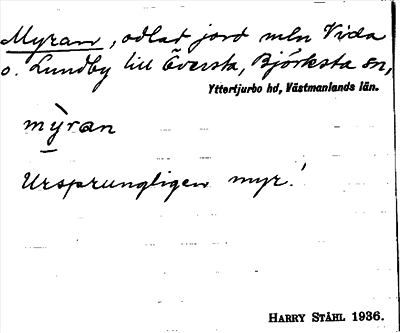 Myran, odlad jord mln Vida
o. Lundby till Översta, Björksta sn,
Yttertjurbo hd, Västmanlands län.
mỳran
Ursprungligen myr!
HARRY STÅHL 1936.